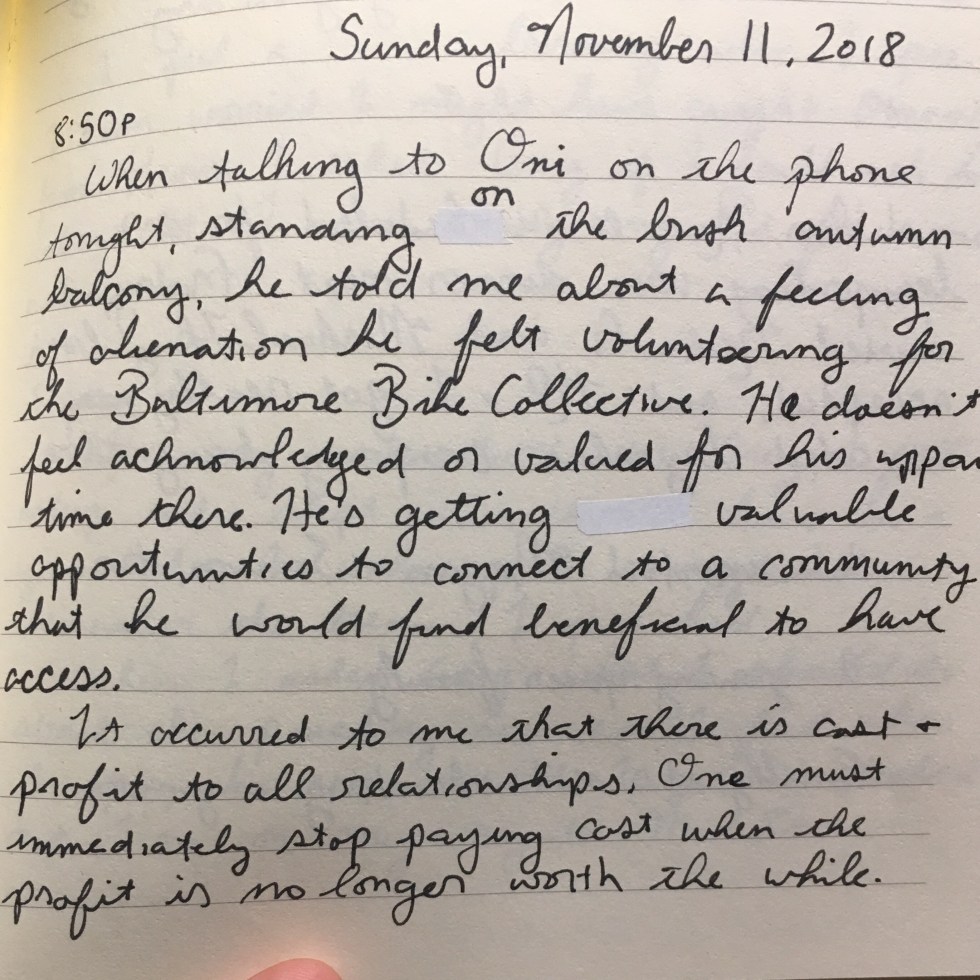 Sunday, November 11, 2018
8:50P
When talking to Oni on the phone
on
tonight, standing the brisk autumn
balcony, he told me about a feeling
of alienation he felt volunteering for
the Baltimore Bike Collective. He doesn't
feel acknowledged or valued for his
time there. He's getting valuable
opportunities to connect to a community
that he would find beneficial to have
access.
It occurred to me that there is cost +
profit to all relationships. One must
immediately stop paying cost when the
profit is no longer worth the while.